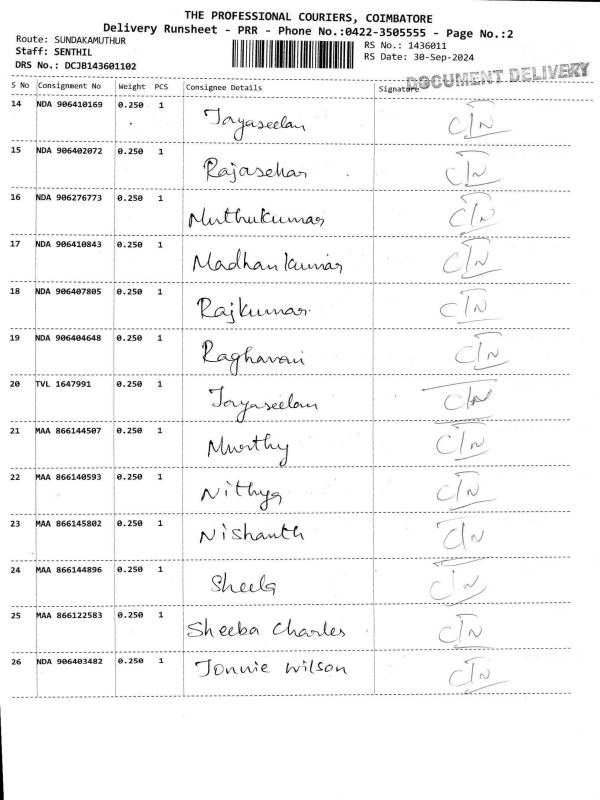 THE PROFESSIONAL COURIERS, COIMBATORE
Delivery Runsheet - PRR - Phone No.:0422-3505555 - Page No.:2
Route: SUNDAKAMUTHUR
Staff: SENTHIL
DRS No.: DCJB143601102
RS No.: 1436011
RS Date: 30-Sep-2024
DOCUMENT DELIVERY
S No Consignment No Weight PCS Consignee Details Signature
14 NDA 906410169 0.250 1 Jayaseelan C/N
15 NDA 906402072 0.250 1 Rajasehar C/N
16 NDA 906276773 0.250 1 Muthukumar C/N
17 NDA 906410843 0.250 1 Madhankumar C/N
18 NDA 906407805 0.250 1 Rajkumar C/N
19 NDA 906404648 0.250 1 Raghavan C/N
20 TVL 1647991 0.250 1 Jayaseelan C/N
21 MAA 866144507 0.250 1 Murthy C/N
22 MAA 866140593 0.250 1 Nithya C/N
23 MAA 866145802 0.250 1 Nishanth C/N
24 MAA 866144896 0.250 1 Sheela C/N
25 MAA 866122583 0.250 1 Sheeba Charles C/N
26 NDA 906403482 0.250 1 Jonnie wilson C/N